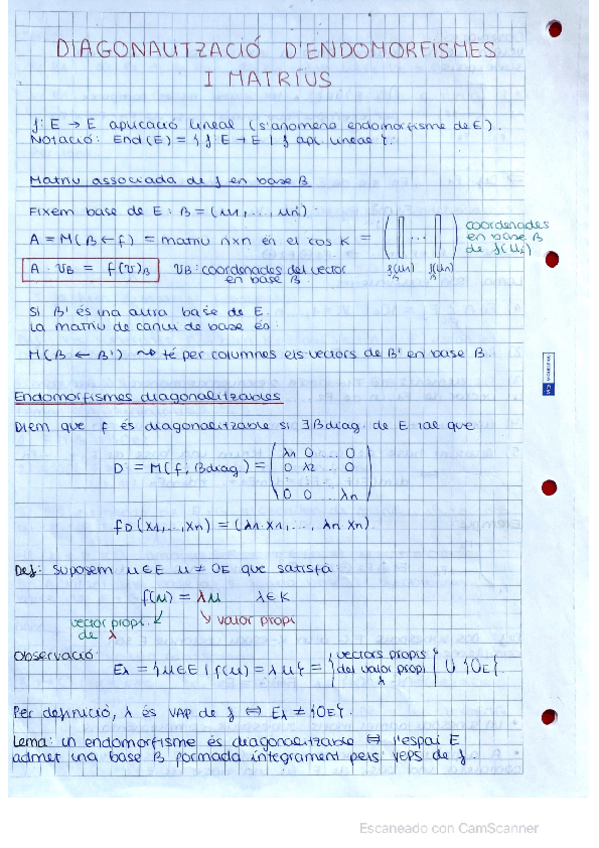 DIAGONALITZACIÓ D'ENDOMORFISMES
I MATRIUS
f: E → E aplicació lineal (s'anomena endomorfisme de E).
Notació: End(E) = { f: E → E | f apl. lineal }.
Matriu associada de f en base B
Fixem base de E: B = (u1, ..., un)
A = M(B ← f) = matriu n×n en el cos K = ( ... ) coordenades
en base B
de f(ui)
f(u1)B f(un)B
A · vB = f(v)B vB: coordenades del vector
en base B
Si B' és una altra base de E.
La matriu de canvi de base és:
M(B ← B') ⤳ té per columnes els vectors de B' en base B.
Endomorfismes diagonalitzables
Diem que f és diagonalitzable si ∃Bdiag. de E tal que
D = M(f, Bdiag) = ( λ1 0 ... 0
0 λ2 ... 0
0 0 ... λn )
fD(x1, ..., xn) = (λ1·x1, ..., λn xn)
Def: Suposem u∈E u ≠ 0E que satisfà
f(u) = λu λ∈K
vector propi ↙ ↘ valor propi
de λ
Observació:
Eλ = {u∈E | f(u) = λu} = { vectors propis
del valor propi
λ } ∪ {0E}.
Per definició, λ és VAP de f ⇔ Eλ ≠ {0E}.
Lema: un endomorfisme és diagonalitzable ⇔ l'espai E
admet una base B formada íntegrament pels veps de f.
Escaneado con CamScanner